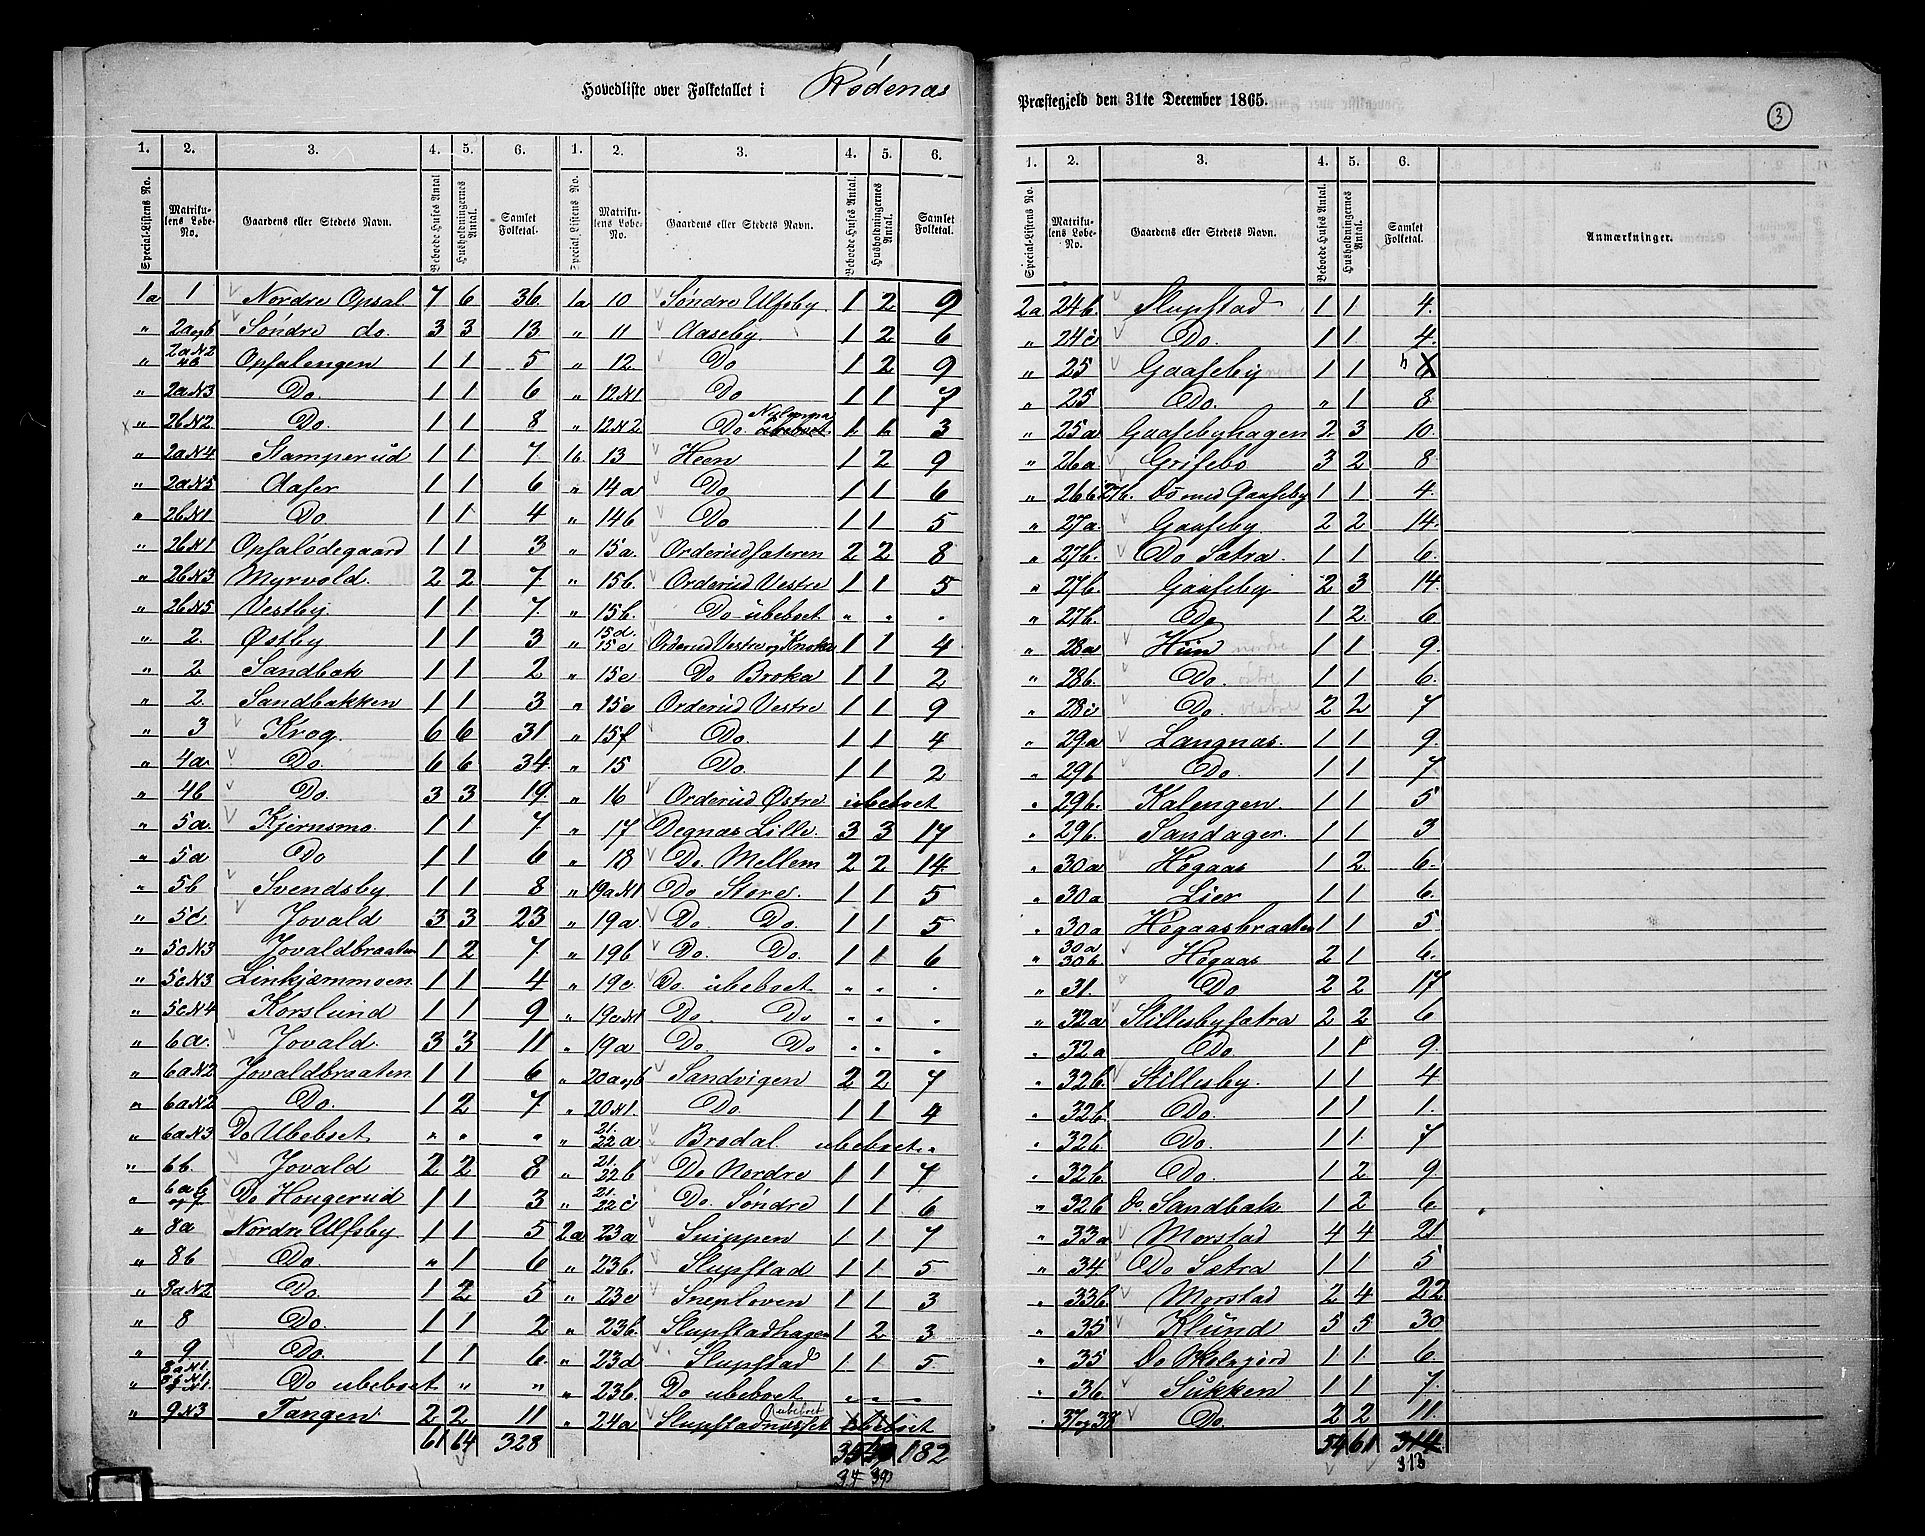 Hovedliste over Folketallet i Rødenæs Præstegjeld den 31te December 1865.
3
1. 2. 3. 4. 5. 6. 1. 2. 3. 4. 5. 6.
Special-Listens No. Matrikulens Løbe-No. Gaardens eller Stedets Navn. Beboede Huses Antal Husholdningernes Antal. Samlet Folketal. Special-Listens No. Matrikulens Løbe-No. Gaardens eller Stedets Navn. Beboede Huses Antal. Husholdningernes Antal. Samlet Folketal.
1a 1 Nordre Opsal 7 6 36. 1a 10 Søndre Ulfsby 1 2 9
" 2a og b Søndre do. 3 3 13 " 11 Aaseby. 1 2 6
" 2a N2 Opsalengen 1 1 5 " 12. Do 1 2 9
" 2a N3 Do. 1 1 6 " 12 N1 Do 1 1 7
" 2b N2 Do. 1 1 8 " 12 N2 Do. 1 1 3
" 2a N4 Stamperud 1 1 7 1b. 13 Heen 1 2 9
" 2a N5 Aaser 1 1 6 " 14a Do 1 1 6
" 2b N1 Do. 1 1 4 " 14b Do 1 1 5
" 2b N1 Opsalødegaard 1 1 3 " 15a. Orderudsæteren 2 2 8
" 2b N3 Myrvold. 2 2 7 " 15b. Orderud Vestre 1 1 5
" 2b N5 Vestby. 1 1 7 " 15b. Do ubeboet " " "
" 2. Østby 1 1 3 " 15d. 15e Orderud Vestre og Knoka 1 1 4
" 2 Sandbak 1 1 2 " 15e Do Broka 1 1 2
" 2 Sandbakken 1 1 3 " 15e Orderud Vestre 1 1 9
" 3 Krog. 6 6 31 " 15f Do. 1 1 4
" 4a. Do. 6 6 34. " 15 Do. 1 1 2
" 4b Do. 3 3 19. " 16 Orderud Østre ubeboet
" 5a. Kjernsmo. 1 1 7 " 17 Degnæs Lille. 3 3 17
" 5a Do 1 1 6 " 18 Do. Mellem 2 2 14
" 5b Svendsby 1 1 8 " 19a N1 Do Store. 1 1 5
" 5c. Jovald 3 3 23 " 19a Do. Do. 1 1 5
" 5c N3 Jovaldbraaten 1 2 7 " 19b Do. Do. 1 1 6
" 5c N3 Linkjæmmoen 1 1 4 " 19c. Do ubeboet " " "
" 5c N4 Korslund 1 1 9 " 19c N1 Do. Do " " "
" 6a. Jovald. 3 3 11 " 19a Do. Do " " "
" 6a N2 Jovaldbraaten 1 1 6 " 20a og b Sandvigen 2 2 7
" 6a N2 Do. 1 2 7 " 20 N1. Do. 1 1 4
" 6a N3 Do Ubeboet " " " " 21. 22a Brodal ubeboet "
" 6b. Jovald 2 2 8 " 21. 22b Do Nordre 1 1 7
" 6a b og 7 Do Hougerud 1 1 3 " 21. 22c Do. Søndre 1 1 6
" 8a Nordre Ulfsby 1 1 5 2a 23a Snippen 1 1 7
" 8b Do. " 1 6 " 23b. Slupstad 1 1 5
" 8a N2 Do. 1 2 5 " 23c Sneploven 1 1 3
" 8 Do. 1 1 2 " 23b. Slupstadhagen 1 2 3
" 9 Do. 1 1 6. " 23d Slupstad 1 1 5.
" Do ubeboet " " " 23b. Do ubeboet " " "
" 9 N3 Tangen 2 2 11 " 24a Slupstadnæsset ubeboet
61 64 328 182
37 39
1. 2. 3. 4. 5. 6.
Special-Listens No. Matrikulens Løbe-No. Gaardens eller Stedets Navn. Beboede Huses Antal. Husholdningernes Antal. Samlet Folketal. Anmærkninger.
2a 24b. Slupstad 1 1 4.
" 24c Do. 1 1 4.
" 25 Gaaseby 1 1
" 25 Do. " 1 8
" 25a Gaasebyhagen 2 3 10.
" 26a Grisebo 3 2 8
" 26b 27b. Do med Gaaseby 1 1 4.
" 27a. Gaaseby 2 2 14.
" 27b. Do Sætra. 1 1 6.
" 27b. Gaaseby 2 3 14.
" 27b. Do 1 2 6
" 28a Hün nordre 1 1 9.
" 28b. Do. østre 1 1 6.
" 28c Do. vestre 2 2 7
" 29a Langnæs. 1 1 9.
" 29b Do. 1 1 7
" 29b. Kalengen. 1 1 5
" 29b. Sandager. 1 1 3
" 30a Høgaas 1 2 6.
" 30a Lier 1 1 6.
" 30a Høgaasbraaten 1 1 5
" 30a 30b. Høgaas 2 1 6.
" 31. Do 2 2 17
" 32a Stillesbysætra 2 2 6
" 32a Do. 1 1 9.
" 32b. Stillesby. 1 1 4
" 32b. Do. 1 1 1.
" 32b. Do. 1 1 7
" 32b. Do. 1 2 9.
" 32b do. Sandbak 1 2 6
" 33a Morstad 4 4 21
" 34. Do Sætra 1 1 5
" 33b. Morstad 2 4 22
" 35 Klund 5 5 30
" 35 Do 1 1 6.
" 36 Sukken 1 1 7.
" 37 og 38 Do. 2 2 11.
54 61 314
313